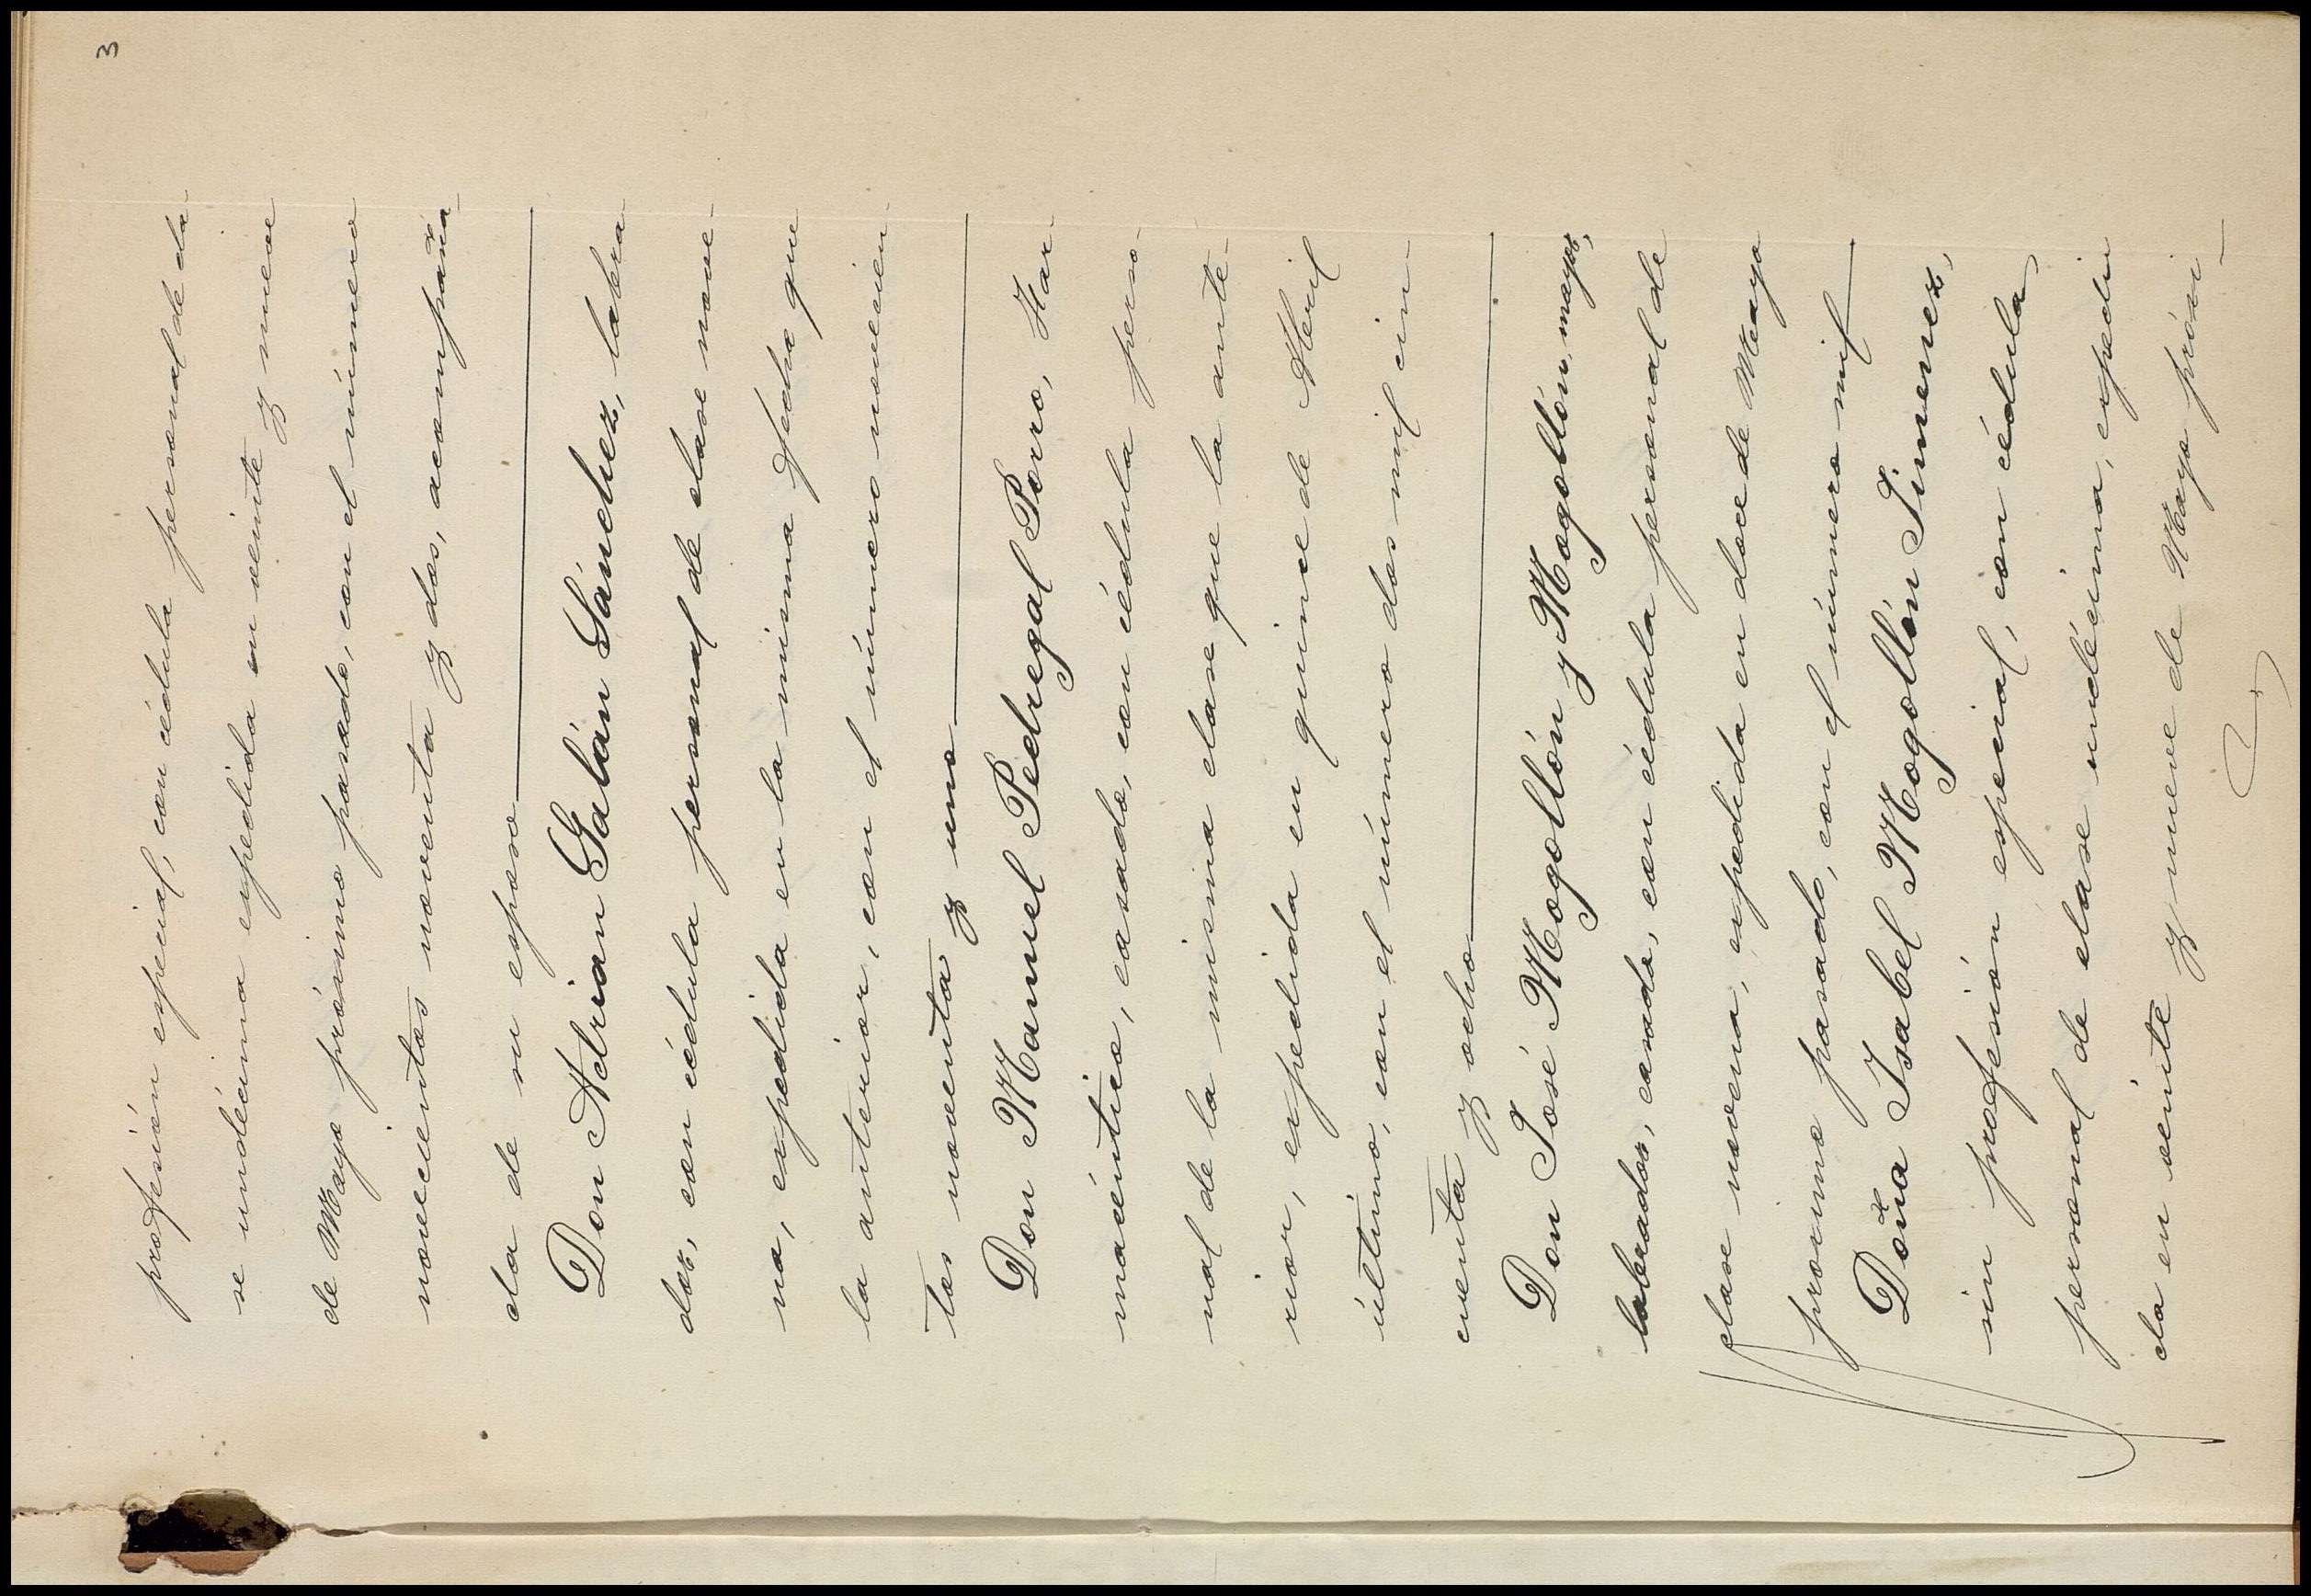 3
profesión especial, con cédula personal de cla-
se undécima expedida en veinte y nueve
de Mayo próximo pasado, con el número
novecientos noventa y dos, acompaña-
da de su esposo
Don Adrian Galán Sánchez, labra-
dor, con cédula personal de clase nove-
na, expedida en la misma fecha que
la anterior, con el número novecien-
tos noventa y uno
Don Manuel Pedregal Porro, Far-
macéutico, casado, con cédula perso-
nal de la misma clase que la ante-
rior, expedida en quince de Abril
último, con el número dos mil cin-
cuenta y ocho
Don José Mogollón y Mogollón, mayor,
labrador, casado, con cédula personal de
clase novena, expedida en doce de Mayo
proximo pasado, con el número mil
Doña Isabel Mogollón Jimenez,
sin profesión especial, con cédula
personal de clase undécima, expedi-
da en veinte y nueve de Mayo próxi-